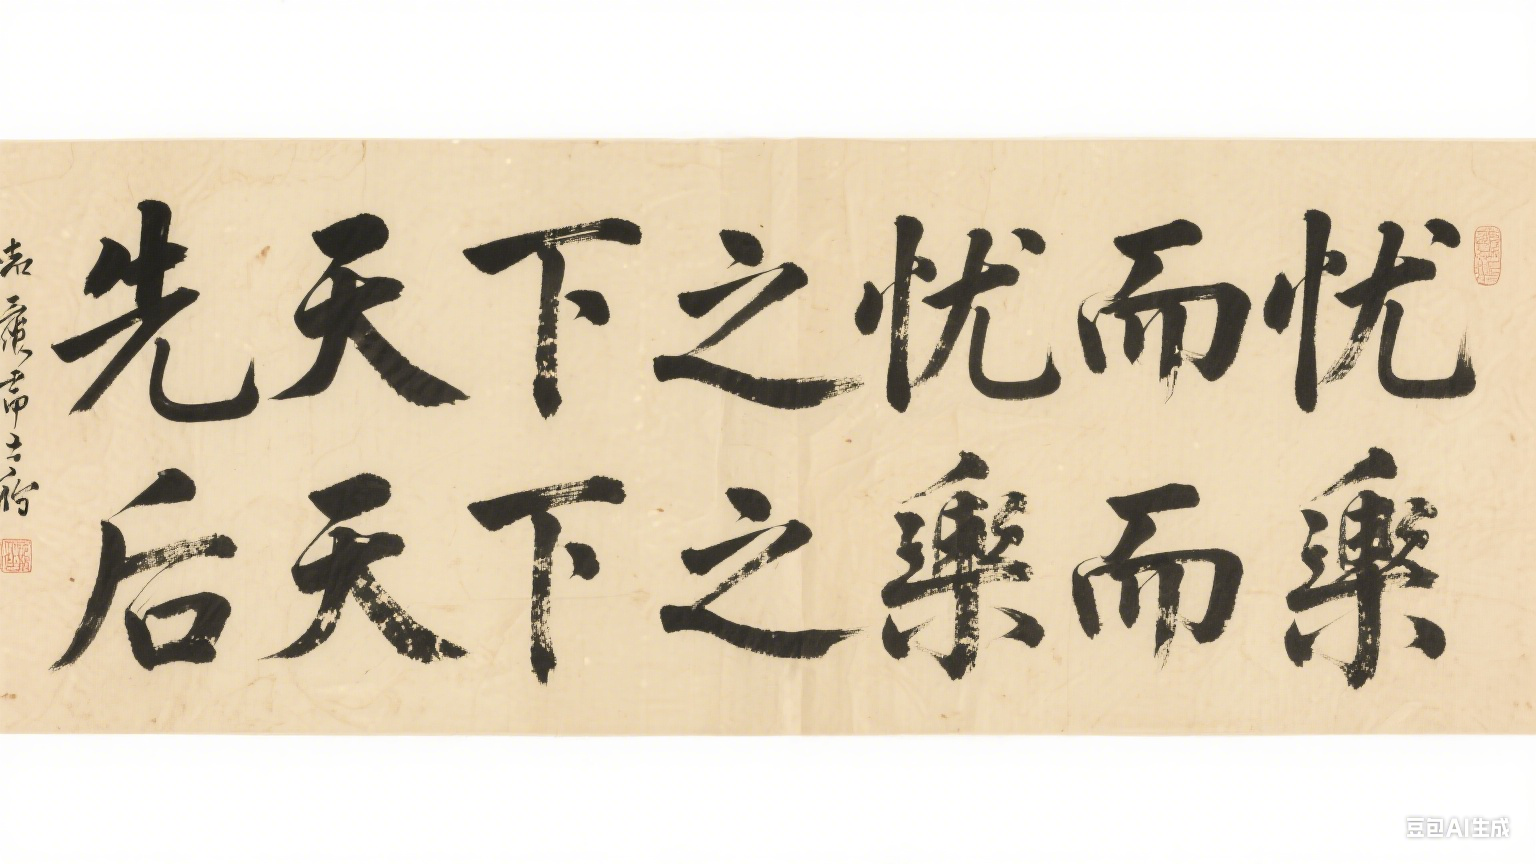 先天下之忧而忧
后天下之樂而樂
豆包AI生成